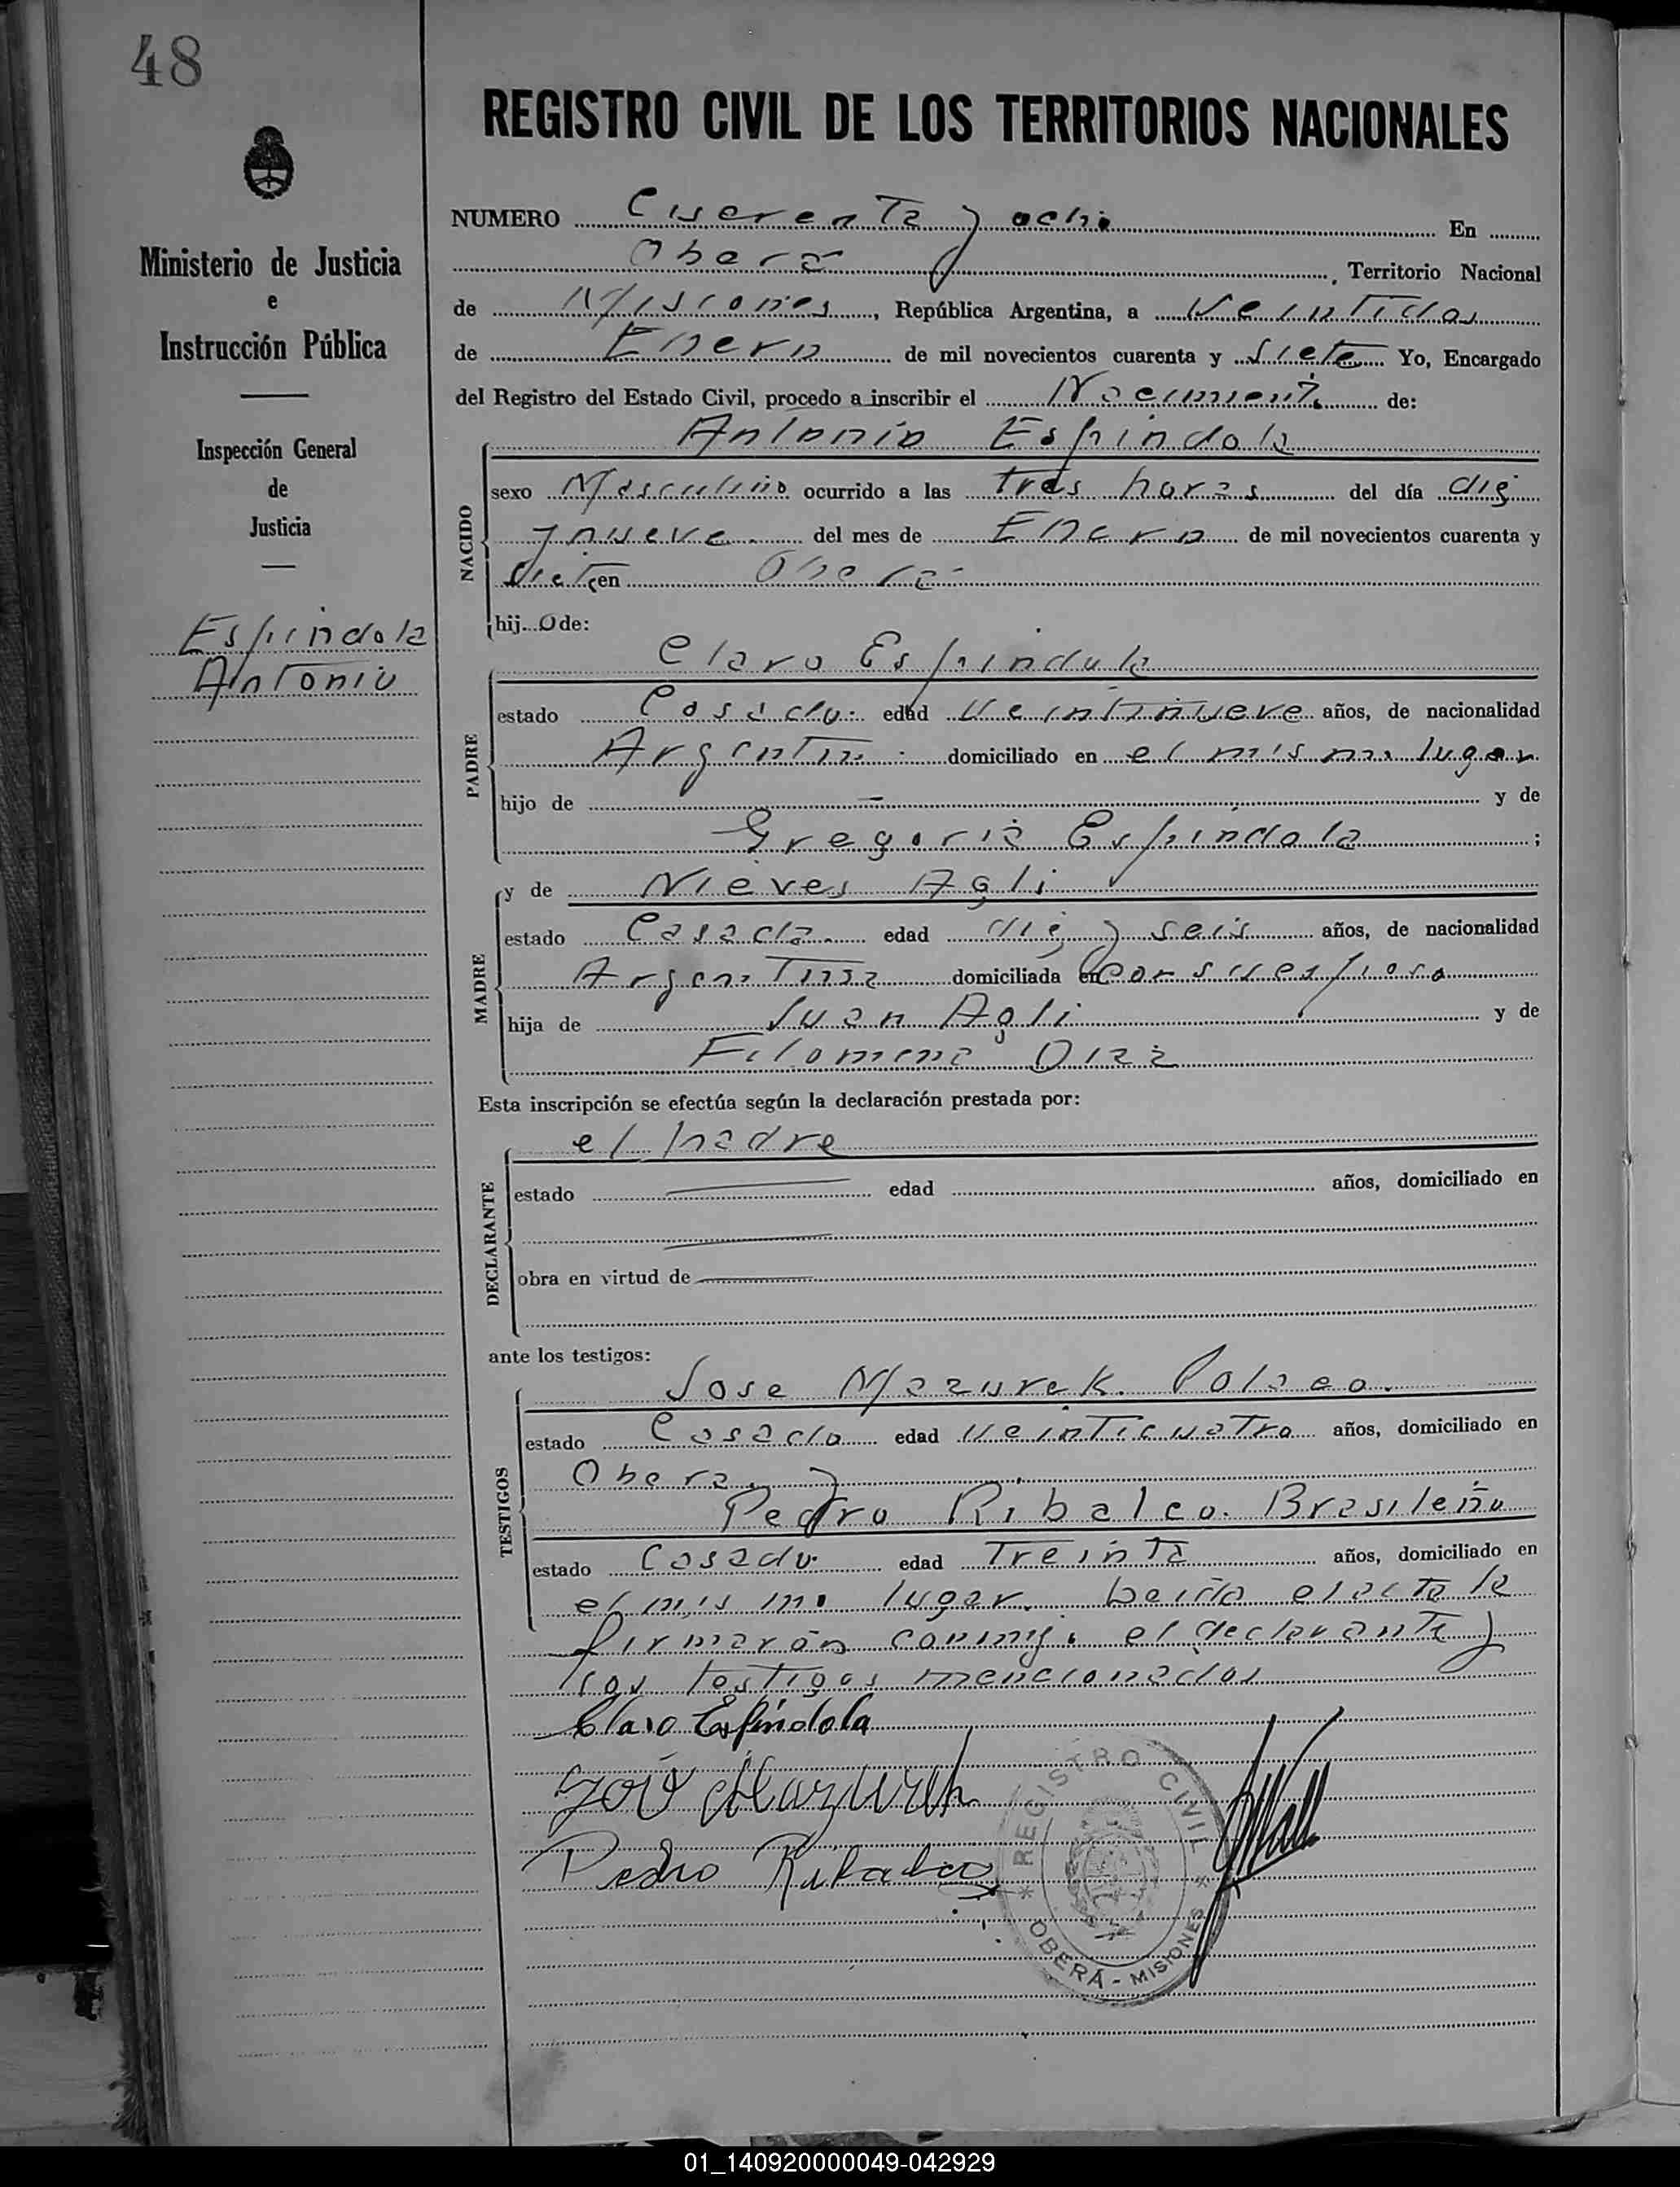 48
REGISTRO CIVIL DE LOS TERRITORIOS NACIONALES
Ministerio de Justicia
e
Instrucción Pública
Inspección General
de
Justicia
Espindola
Antonio
NUMERO Cuarenta y ocho En
Oberá, Territorio Nacional
de Misiones, República Argentina, a Veintidos
de Enero de mil novecientos cuarenta y Siete Yo, Encargado
del Registro del Estado Civil, procedo a inscribir el Nacimiento de:
Antonio Espindola
NACIDO
sexo Masculino ocurrido a las tres horas del día diez
y nueve del mes de Enero de mil novecientos cuarenta y
Siete en Oberá
hijo de:
Claro Espindola
PADRE
estado Casado. edad Veintinueve años, de nacionalidad
Argentino domiciliado en el mismo lugar
hijo de — y de
Gregoria Espindola ;
y de Nieves Agli
MADRE
estado Casada. edad diez y seis años, de nacionalidad
Argentina domiciliada en con su esposo
hija de Juan Agli y de
Filomena Diaz
Esta inscripción se efectúa según la declaración prestada por:
el padre
DECLARANTE
estado edad años, domiciliado en
obra en virtud de
ante los testigos:
Jose Mazurek. Polaco.
TESTIGOS
estado Casado edad Veinticuatro años, domiciliado en
Obera y
Pedro Ribalco. Brasileño
estado Casado. edad Treinta años, domiciliado en
el mismo lugar. Leida el acta la
firmarón conmigo el declarante y
los testigos mencionados
Claro Espíndola
José Mazurek
Pedro Ribalco
* REGISTRO CIVIL *
OBERÁ - MISIONES
01_140920000049-042929